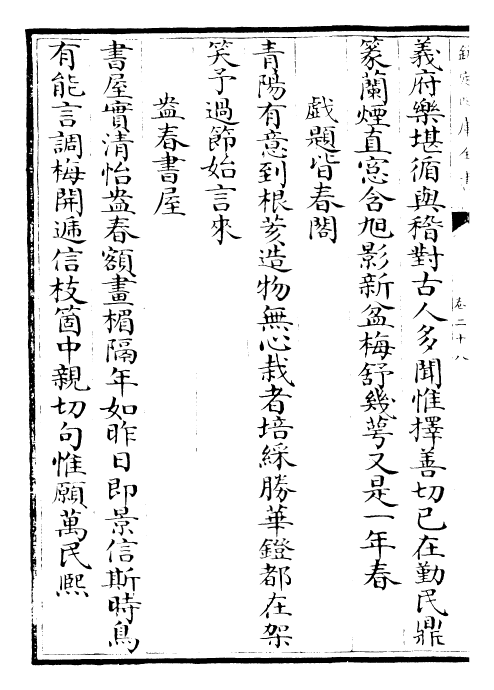 欽定四庫全書
卷二十八
義府樂堪循與稽對古人多聞惟擇善切已在勤民鼎
篆蘭煙直窓含旭影新盆梅舒幾萼又是一年春
戲題皆春閣
青陽有意到根荄造物無心栽者培綵勝華鐙都在架
笑予過節始言來
盎春書屋
書屋實清怡盎春額畫楣隔年如昨日即景信斯時鳥
有能言調梅開遞信枝箇中親切句惟願萬民熙